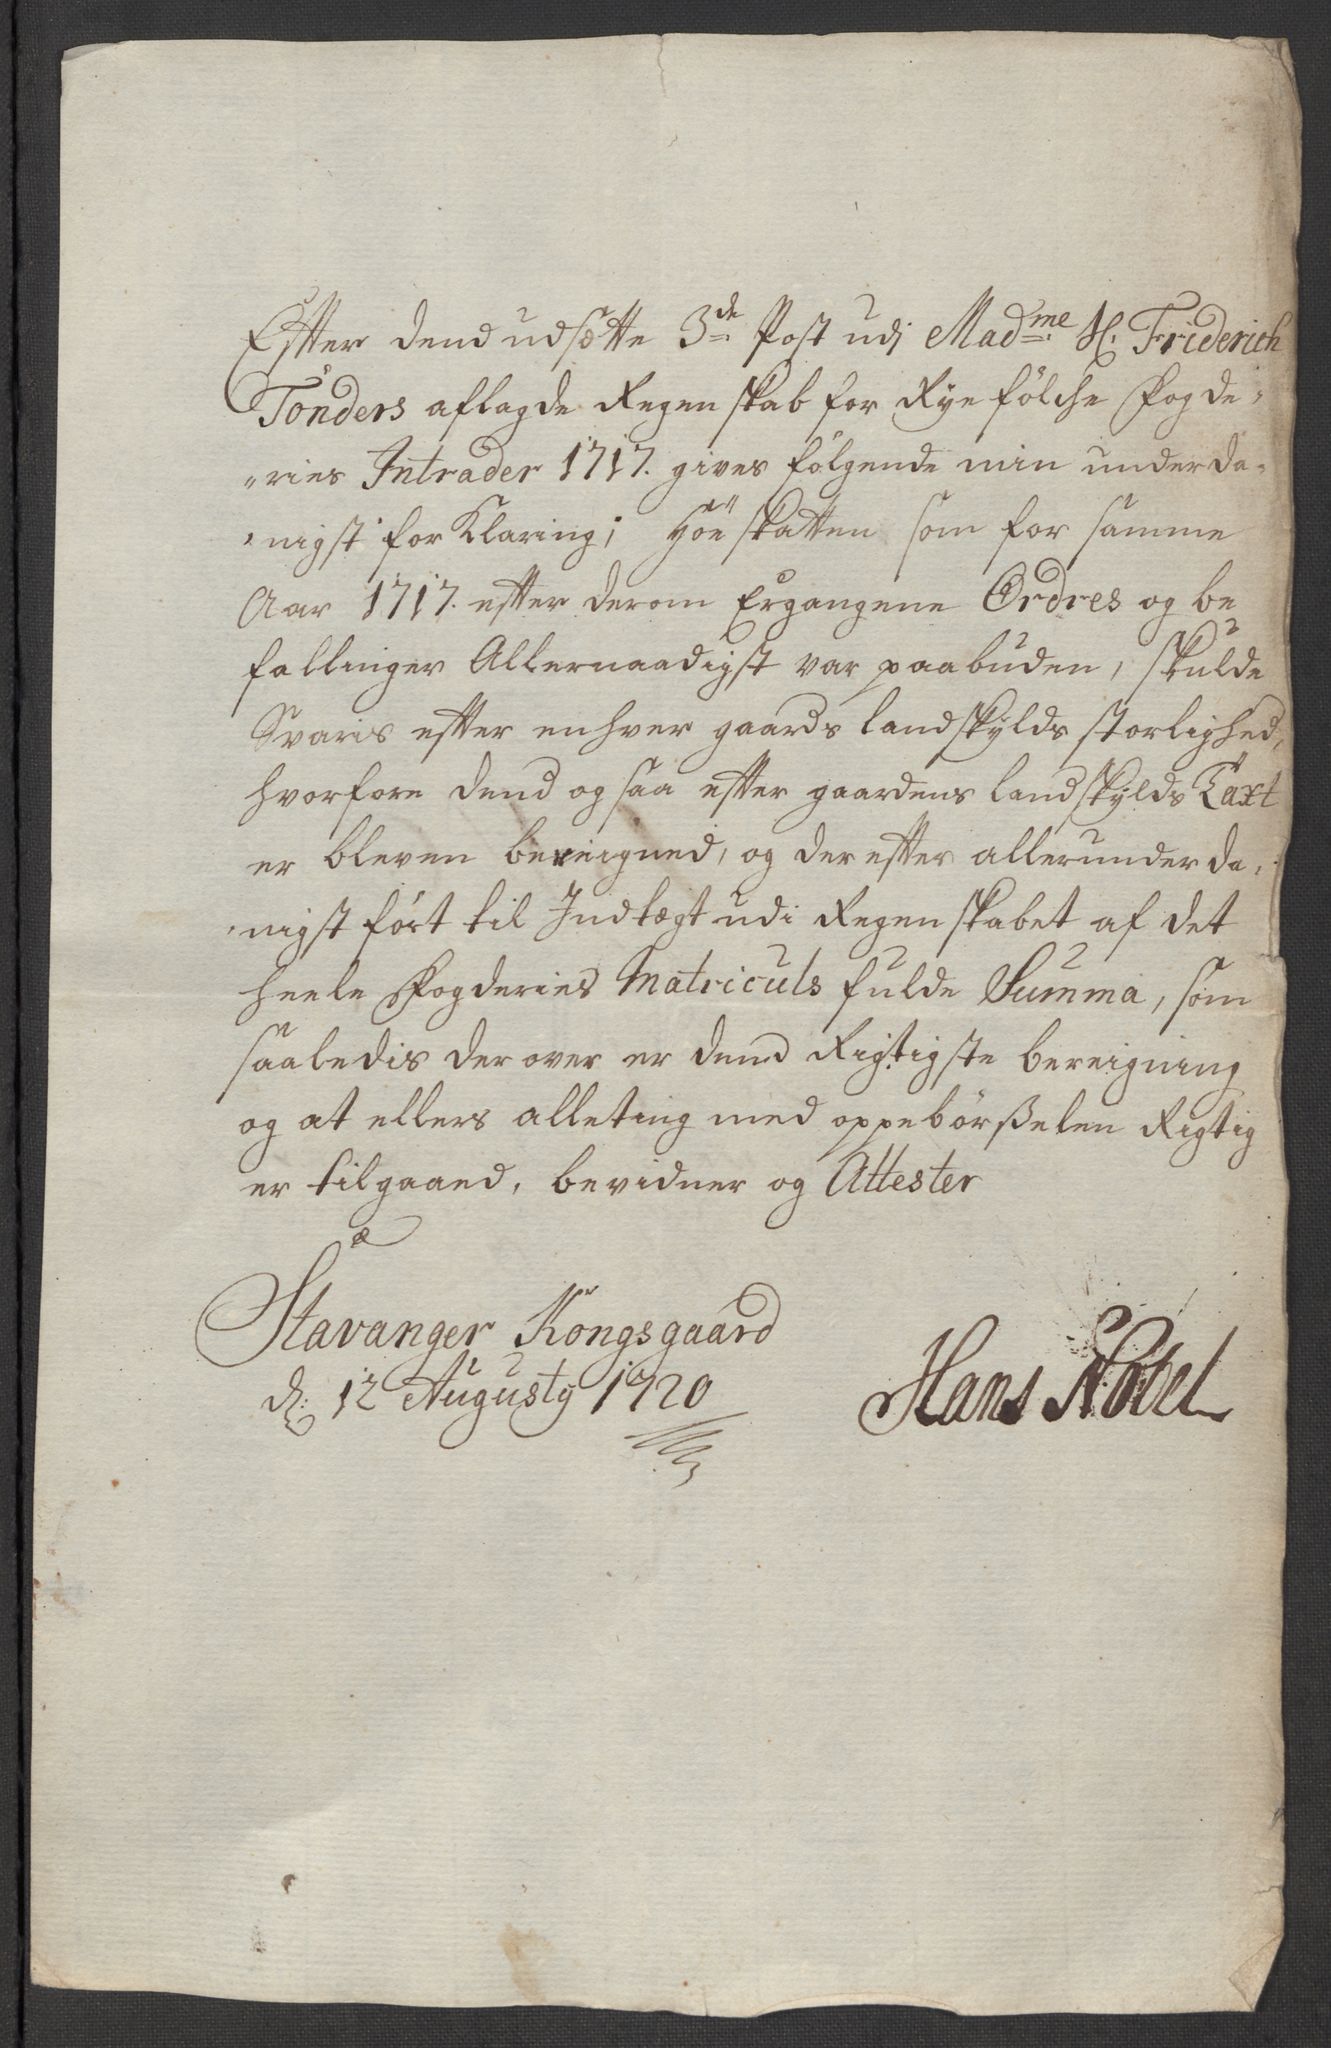 Efter dend udsætte 3de Post udj Madme Sl. Friderich
Tönders aflagde Regenskab for Ryefölche Fogde-
-ries Intrader 1717. gives fölgende min underda-
-nigst forklaring; Höe skatten som for samme
Aar 1717. efter derom Ergangene Ordres og be
fallinger Allernaadigst var paabuden, skulde
Svaris efter enhver gaards landskylds storlighed,
hvorfore dend ogsaa efter gaardens landskylds Taxt
er bleven bereigned, og derefter allerunderda-
-nigst fört til Indtægt udi Regenskabet af det
heele Fogderies Matriculs fulde Summa, som
saaledis derover er dend Rigtigste bereigning
og at ellers alleting med oppebörßelen Rigtig
er tilgaaed, bevidner og Attester
Stavanger Kongsgaard
d: 12 Augusty 1720
Hans Nobel